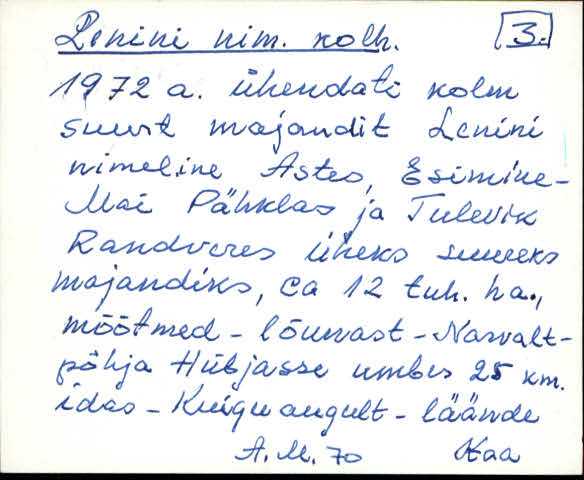 Lenini nim. kolh. 3.
1972 a. ühendati kolm
suurt majandit Lenini
nimeline Astes, Esimine-
Mai Pähklas ja Tulevik
Randveres üheks suureks
majandiks, ca 12 tuh. ha.,
mõõtmed - lõunast - Nasvalt-
põhja Hübjasse umbes 25 km.
idas - Kuiguaugult - läände
A.M. 70 Kaa